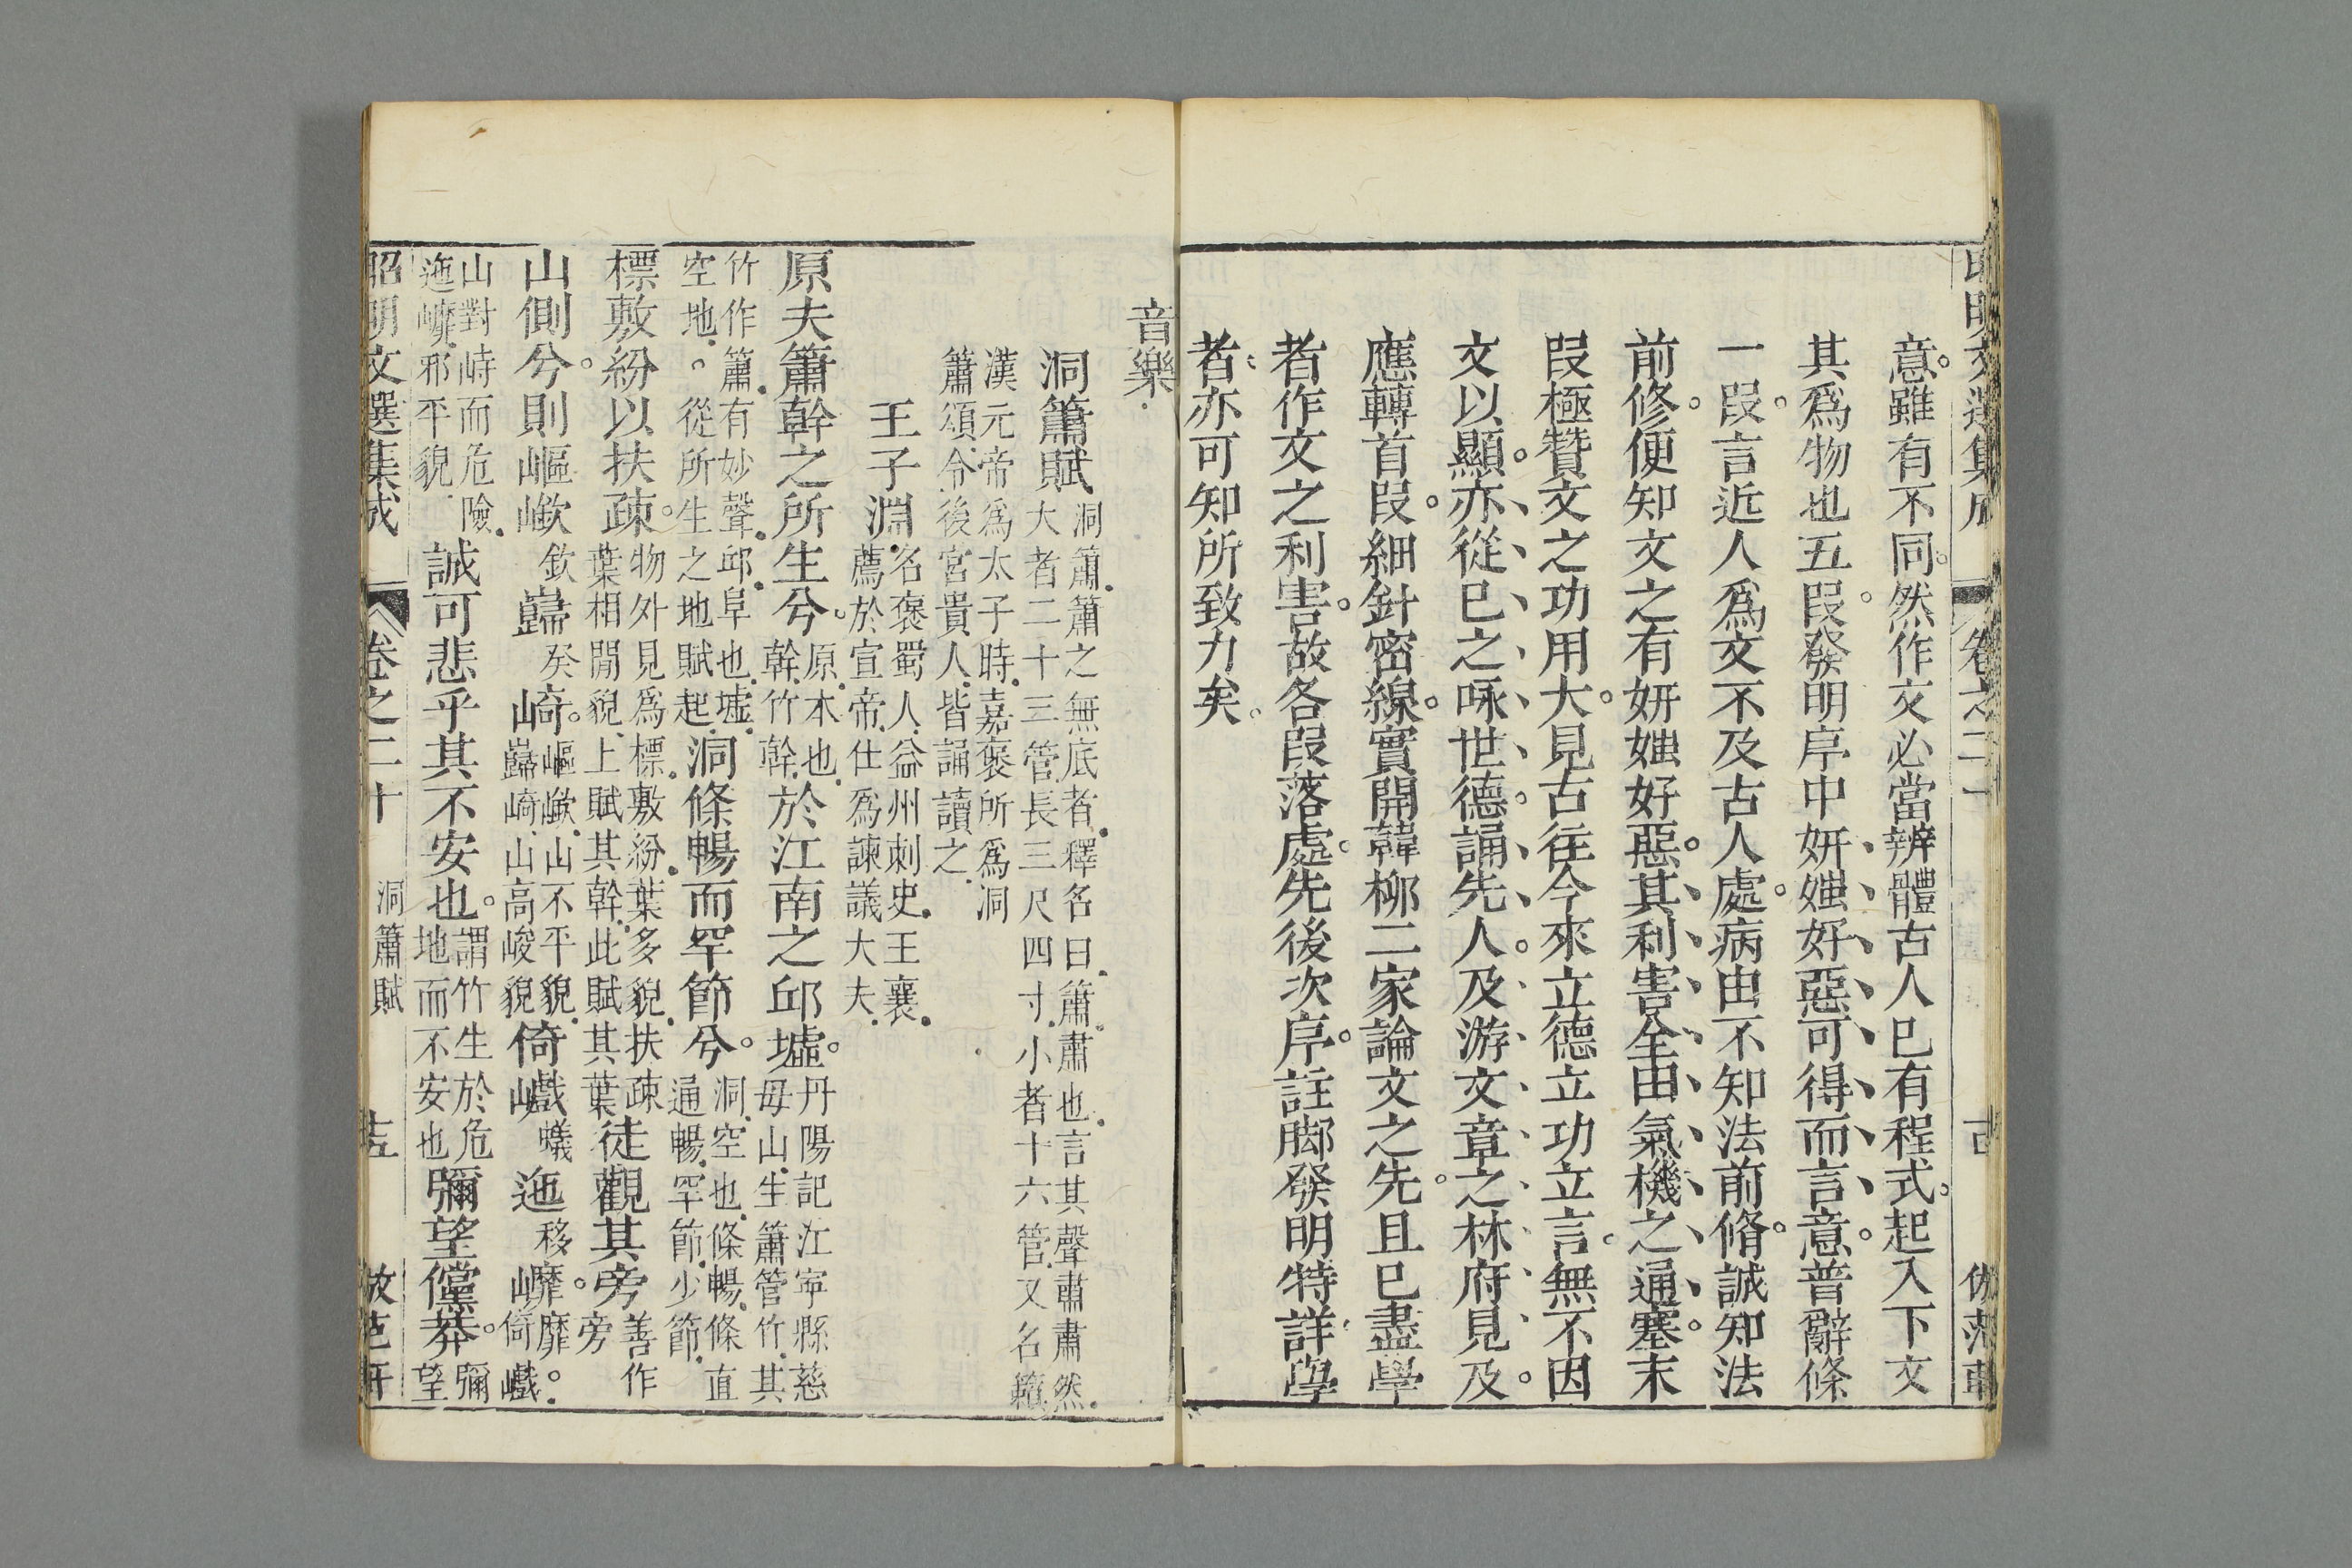 意雖有不同然作文必當辨體古人已有程式起入下文
其爲物也五段發明序中妍媸好惡可得而言意普辭條
一段言近人爲文不及古人處病由不知法前脩誠知法
前修便知文之有妍媸好惡其利害全由氣機之通塞末
段極贊文之功用大見古往今來立德立功立言無不因
文以顯亦從已之咏世德誦先人及游文章之林府見及
應轉首段細針密線實開韓柳二家論文之先且已盡學
者作文之利害故各段落處先後次序註脚發明特詳學
者亦可知所致力矣
音樂
洞簫賦
洞簫簫之無底者釋名曰簫肅也言其聲肅肅然
大者二十三管長三尺四寸小者十六管又名籟
漢元帝爲太子時嘉褒所爲洞
簫頌令後宮貴人皆誦讀之
王子淵
名褒蜀人益州刺史王襄
薦於宣帝仕爲諫議大夫
原夫簫幹之所生兮
原本也
幹竹幹
於江南之邱墟
丹陽記江寧縣慈
母山生簫管竹其
竹作簫有妙聲邱阜也墟
空地。從所生之地賦起
洞條暢而罕節兮
洞空也條暢條直
通暢罕節少節
標敷紛以扶疎
物外見爲標敷紛葉多貌扶疎
葉相閒貌上賦其幹此賦其葉
徒觀其旁
善作
旁
山側兮則嶇嶔
欽
巋
癸
崎
嶇嶔山不平貌
巋崎山高峻貌
倚巇
蟻
迤
移
㠧
靡。
倚巇
山對峙而危險
迤㠧邪平貌
誠可悲乎其不安也
謂竹生於危
地而不安也
彌望儻莽
彌
望
昭明文選集成
卷之二十
洞簫賦